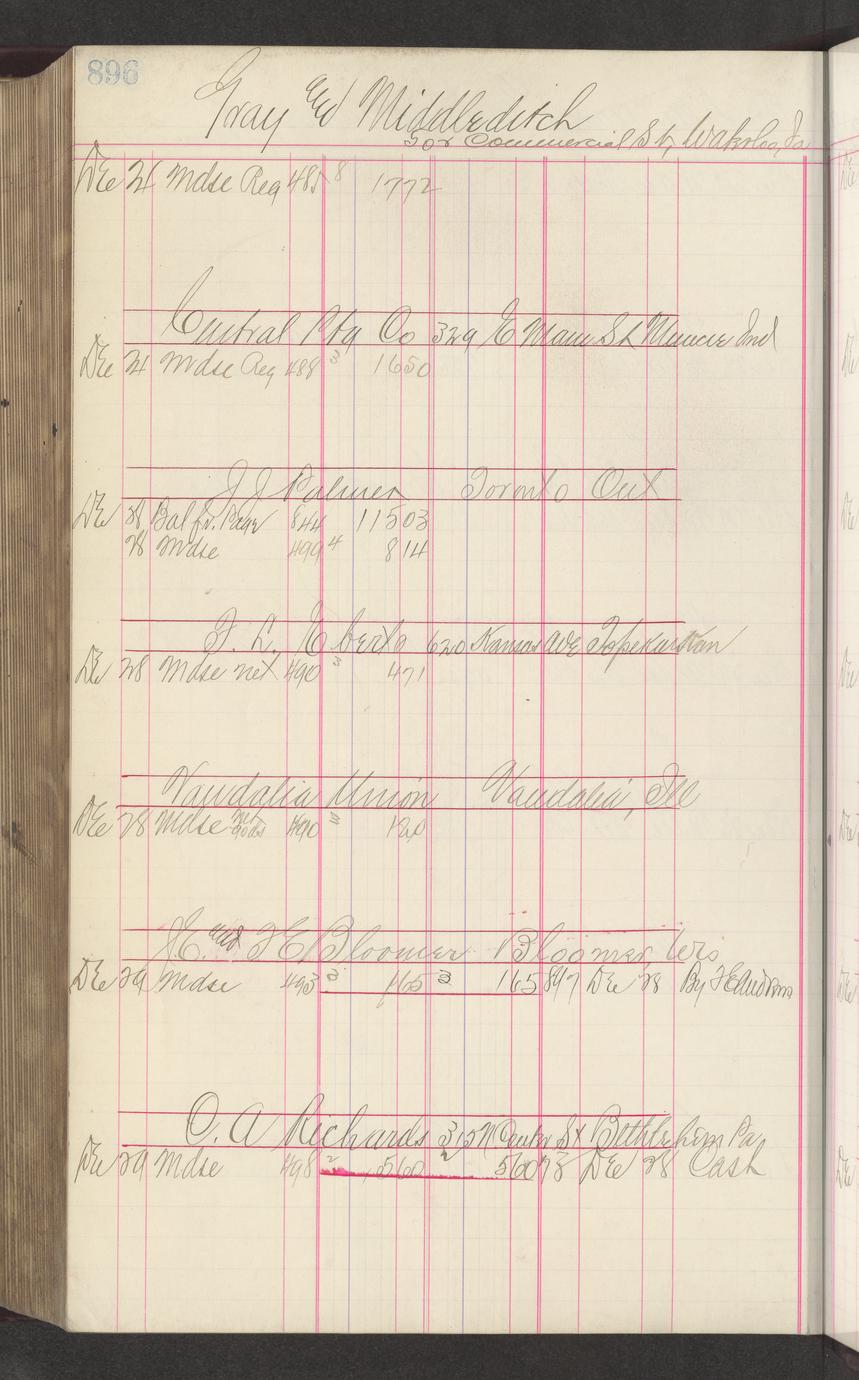 896
Gray and Middleditch
502 Commercial St, Waterloo, Ia
Dec 24 Mdse Reg 485 8 1772
Central Ptg Co 329 E Main St Muncie Ind
Dec 24 Mdse Reg 488 3 1650
J J Palmer Toronto Ont
Dec 28 Bal fr. Page 844 11503
28 Mdse 499 4 814
F. L. Eberts 620 Kansas Ave Topeka Kan
Dec 28 Mdse net 490 3 471
Vandalia Union Vandalia, Ill
Dec 28 Mdse net goods 490 120
J.E. and F E Bloomer Bloomer, Wis
Dec 29 Mdse 493 3 165 3 165 897 Dec 28 By
O. A Richards 315 N. Center St Bethlehem Pa.
Dec 29 Mdse 498 2 560 2 560 73 Dec 28 Cash